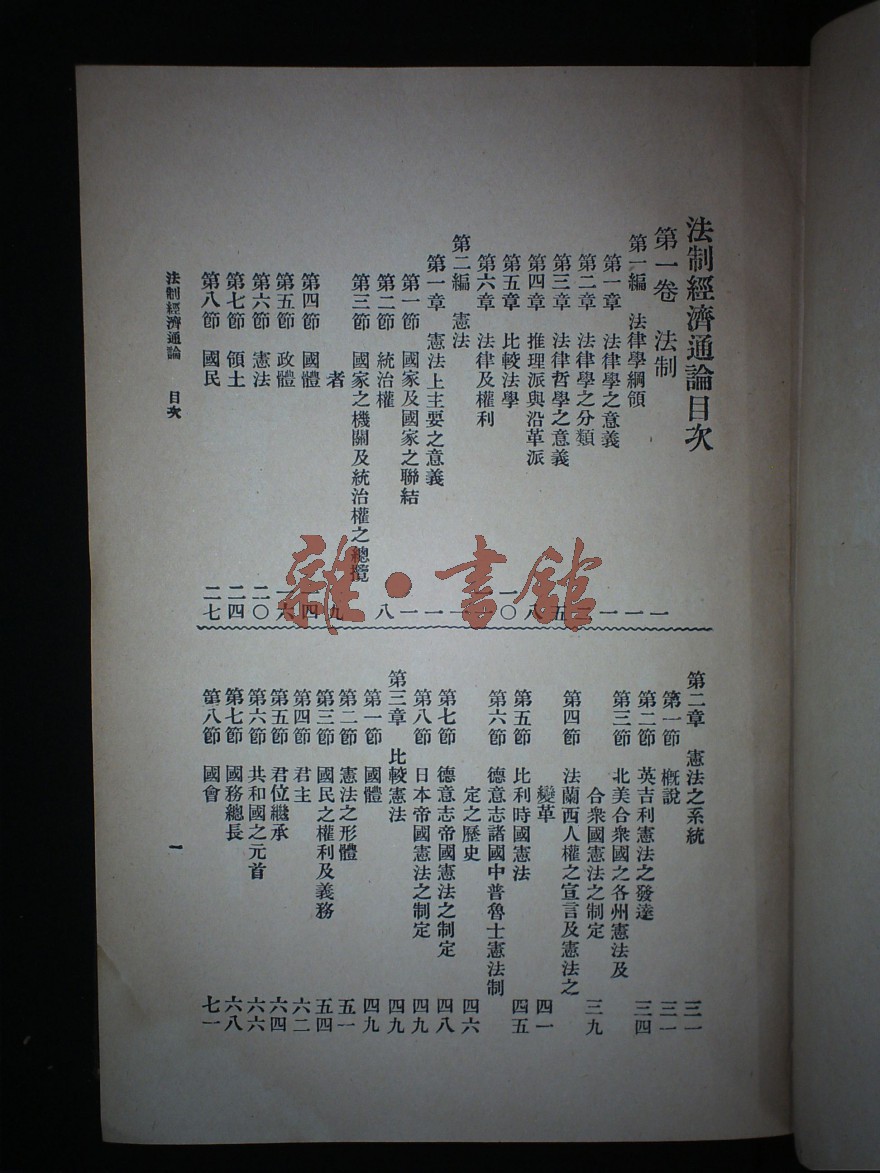 法制經濟通論目次
第一卷 法制 一
第一編 法律學綱領 一
第一章 法律學之意義 一
第二章 法律學之分類 三
第三章 法律哲學之意義 五
第四章 推理派與沿革派 八
第五章 比較法學 一〇
第六章 法律及權利
第二編 憲法 一
第一章 憲法上主要之意義 一
第一節 國家及國家之聯結 一
第二節 統治權 八
第三節 國家之機關及統治權之總攬
者 九
第四節 國體 四
第五節 政體 一六
第六節 憲法 二〇
第七節 領土 二四
第八節 國民 二七
第二章 憲法之系統 三一
第一節 概說 三一
第二節 英吉利憲法之發達 三四
第三節 北美合衆國之各州憲法及
合衆國憲法之制定 三九
第四節 法蘭西人權之宣言及憲法之
變革 四一
第五節 比利時國憲法 四五
第六節 德意志諸國中普魯士憲法制
定之歷史 四六
第七節 德意志帝國憲法之制定 四八
第八節 日本帝國憲法之制定 四九
第三章 比較憲法 四九
第一節 國體 四九
第二節 憲法之形體 五一
第三節 國民之權利及義務 五四
第四節 君主 六二
第五節 君位繼承 六四
第六節 共和國之元首 六六
第七節 國務總長 六八
第八節 國會 七一
法制經濟通論 目次 一
雜·書館